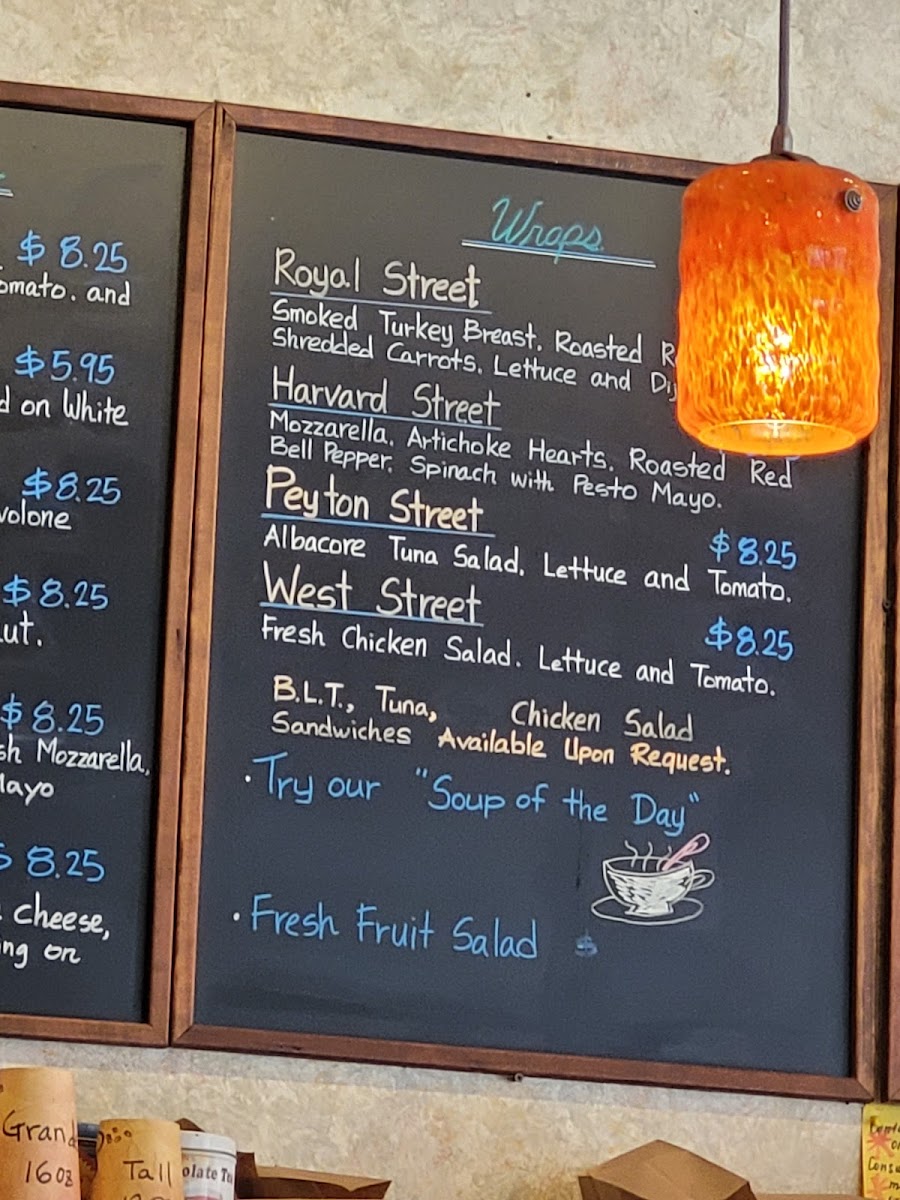 $ 8.25
and
$5.95
on White
$8.25
$8.25
$8.25
Mozzarella,
$ 8.25
Cheese,
on
Wraps
Royal Street
Smoked Turkey Breast, Roasted
Shredded Carrots, Lettuce and
Harvard Street
Mozzarella, Artichoke Hearts, Roasted Red
Bell Pepper, Spinach with Pesto Mayo.
Peyton Street
$8.25
Albacore Tuna Salad, Lettuce and Tomato.
West Street
$8.25
Fresh Chicken Salad, Lettuce and Tomato.
B.L.T., Tuna, Chicken Salad
Sandwiches Available Upon Request.
• Try our "Soup of the Day"
• Fresh Fruit Salad $
16oz
Tall